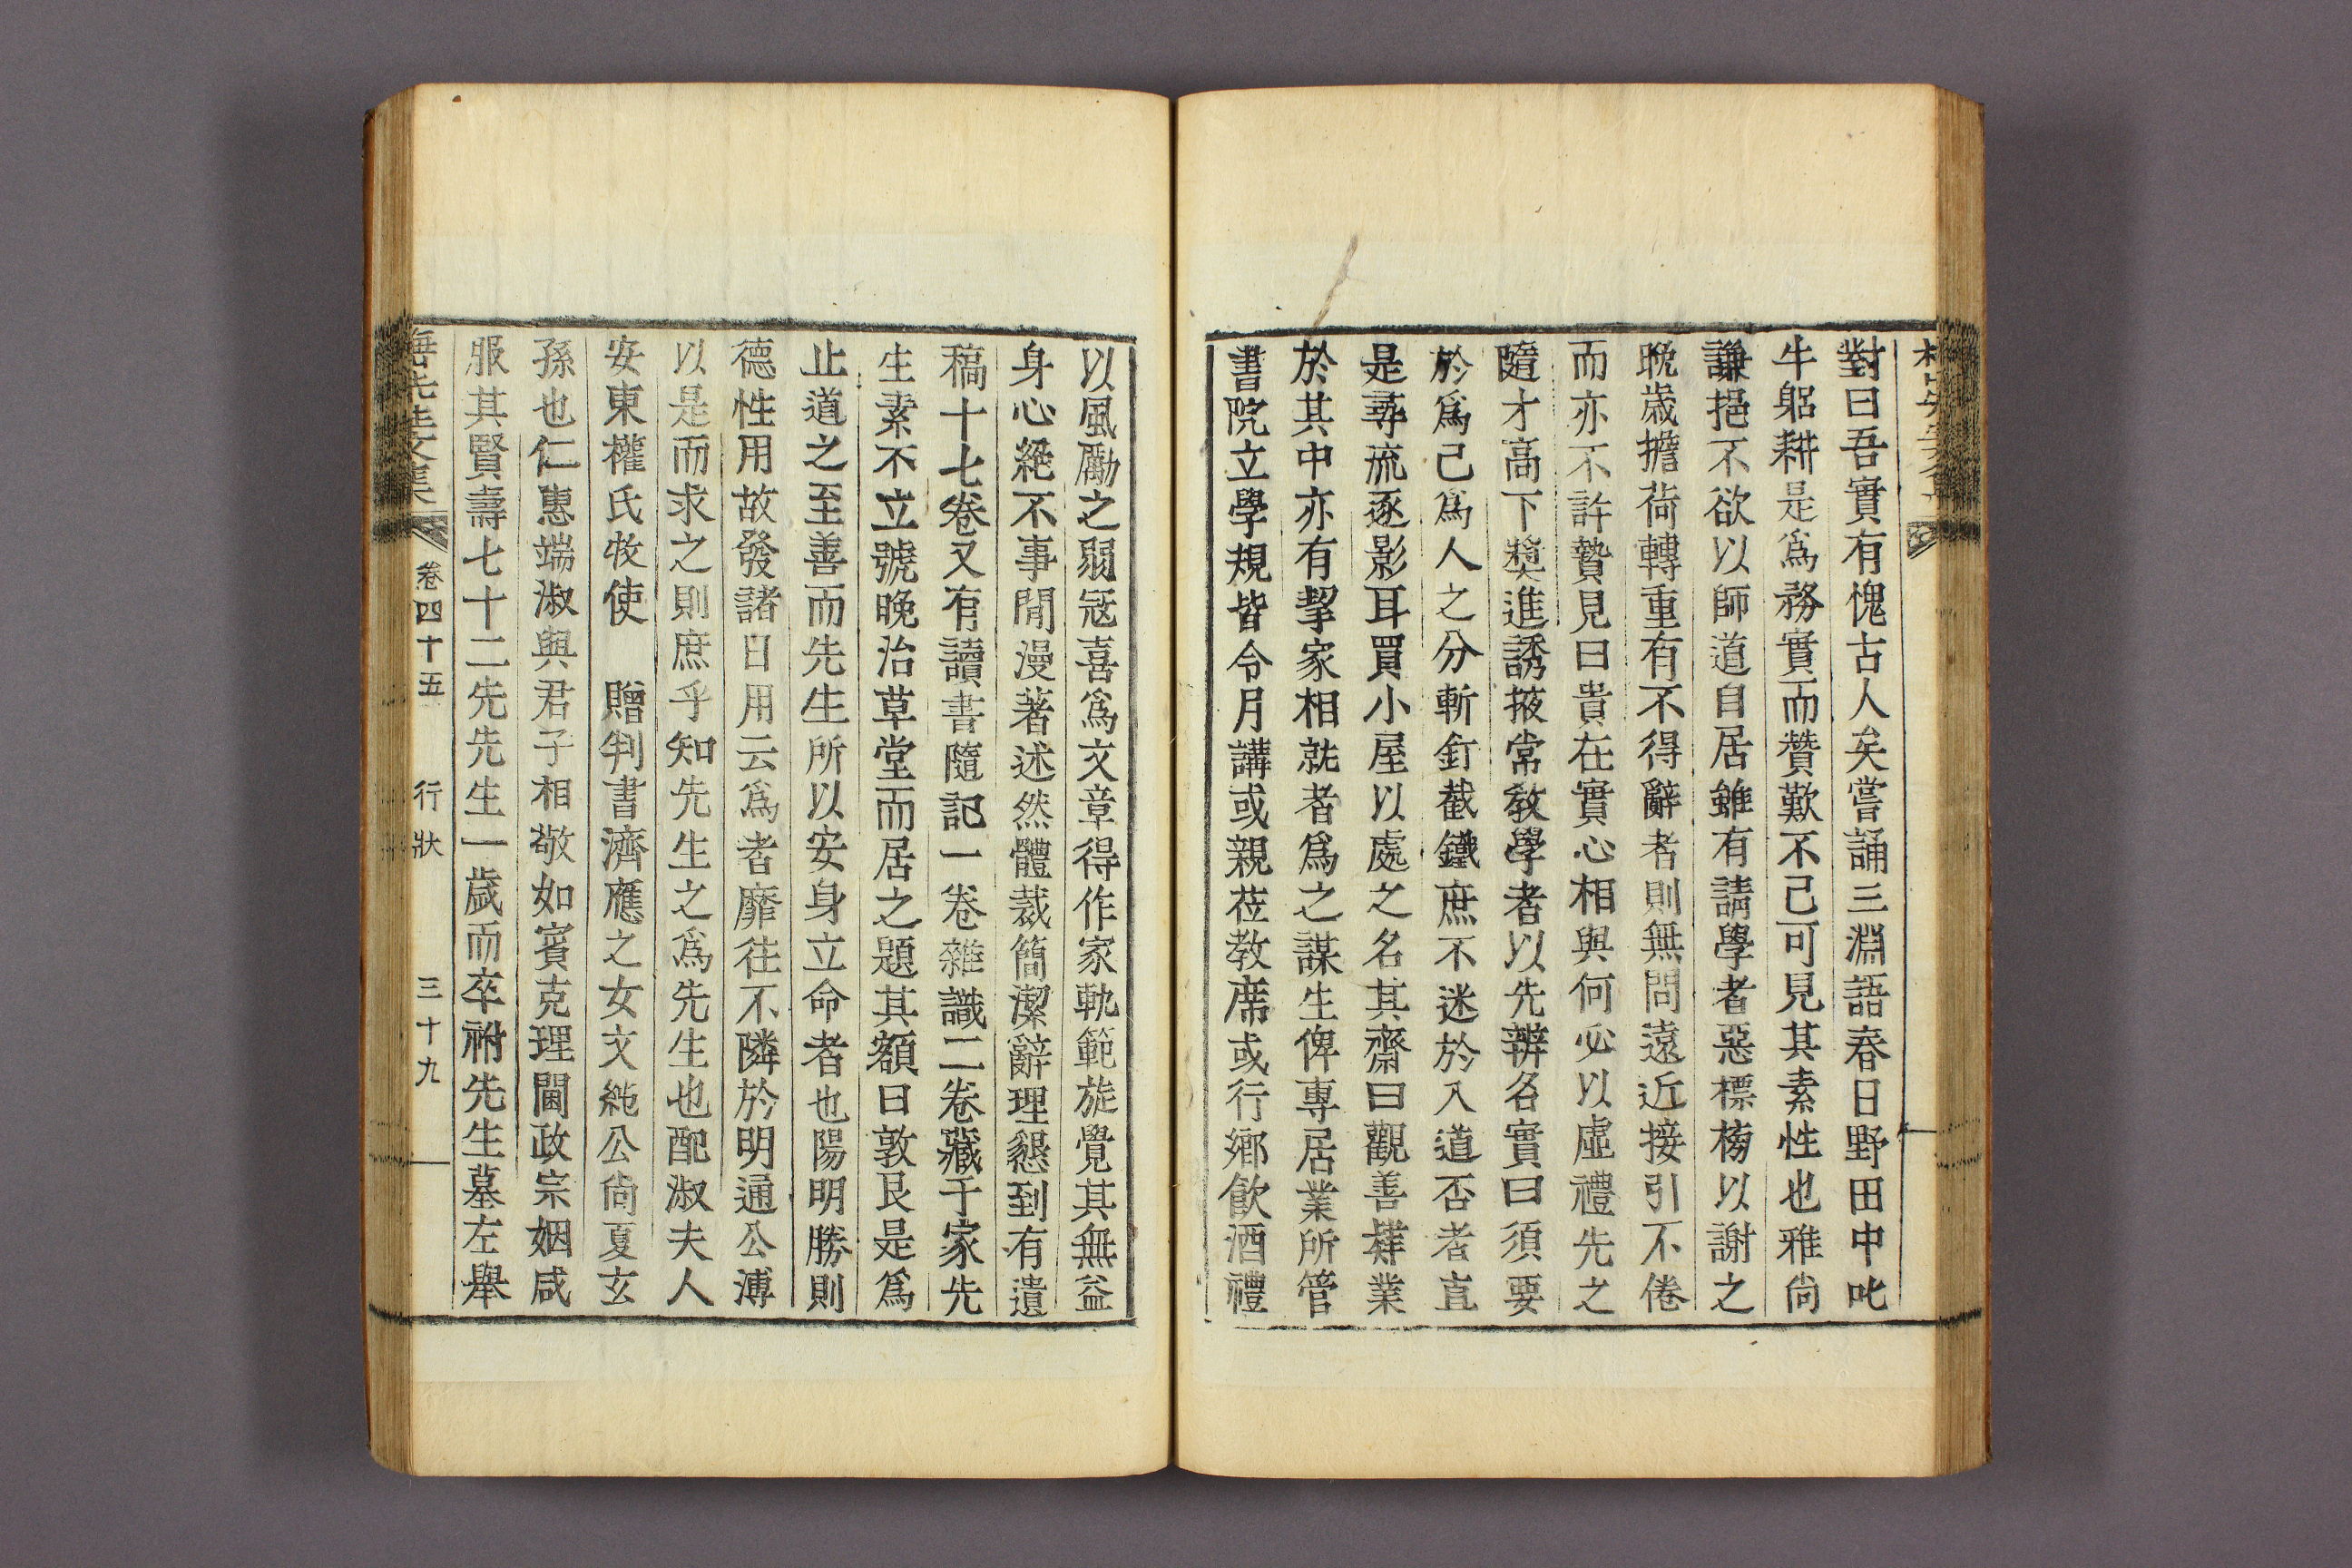 對曰吾實有愧古人矣嘗誦三淵語春日野田中叱
牛躬耕是爲務實而贊歎不已可見其素性也雅尙
謙挹不欲以師道自居雖有請學者惡標榜以謝之
晩歲擔荷轉重有不得辭者則無問遠近接引不倦
而亦不許贄見曰貴在實心相與何必以虛禮先之
隨才高下奬進誘掖常敎學者以先辨名實曰須要
於爲己爲人之分斬釘截鐵庶不迷於入道否者直
是尋流逐影耳買小屋以處之名其齋曰觀善肄業
於其中亦有挈家相就者爲之謀生俾專居業所管
書院立學規皆令月講或親莅敎席或行鄕飮酒禮
以風勵之弱冠喜爲文章得作家軌範旋覺其無益
身心絶不事閒漫著述然體裁簡潔辭理懇到有遺
稿十七卷又有讀書隨記一卷雜識二卷藏于家先
生素不立號晚治草堂而居之題其額曰敦艮是爲
止道之至善而先生所以安身立命者也陽明勝則
德性用故發諸日用云爲者靡往不隣於明通公溥
以是而求之則庶乎知先生之爲先生也配淑夫人
安東權氏牧使 贈判書濟應之女文純公尙夏玄
孫也仁惠端淑與君子相敬如賓克理閫政宗姻咸
服其賢壽七十二先先生一歲而卒祔先生墓左舉
先生文集 卷四十五 行狀 三十九